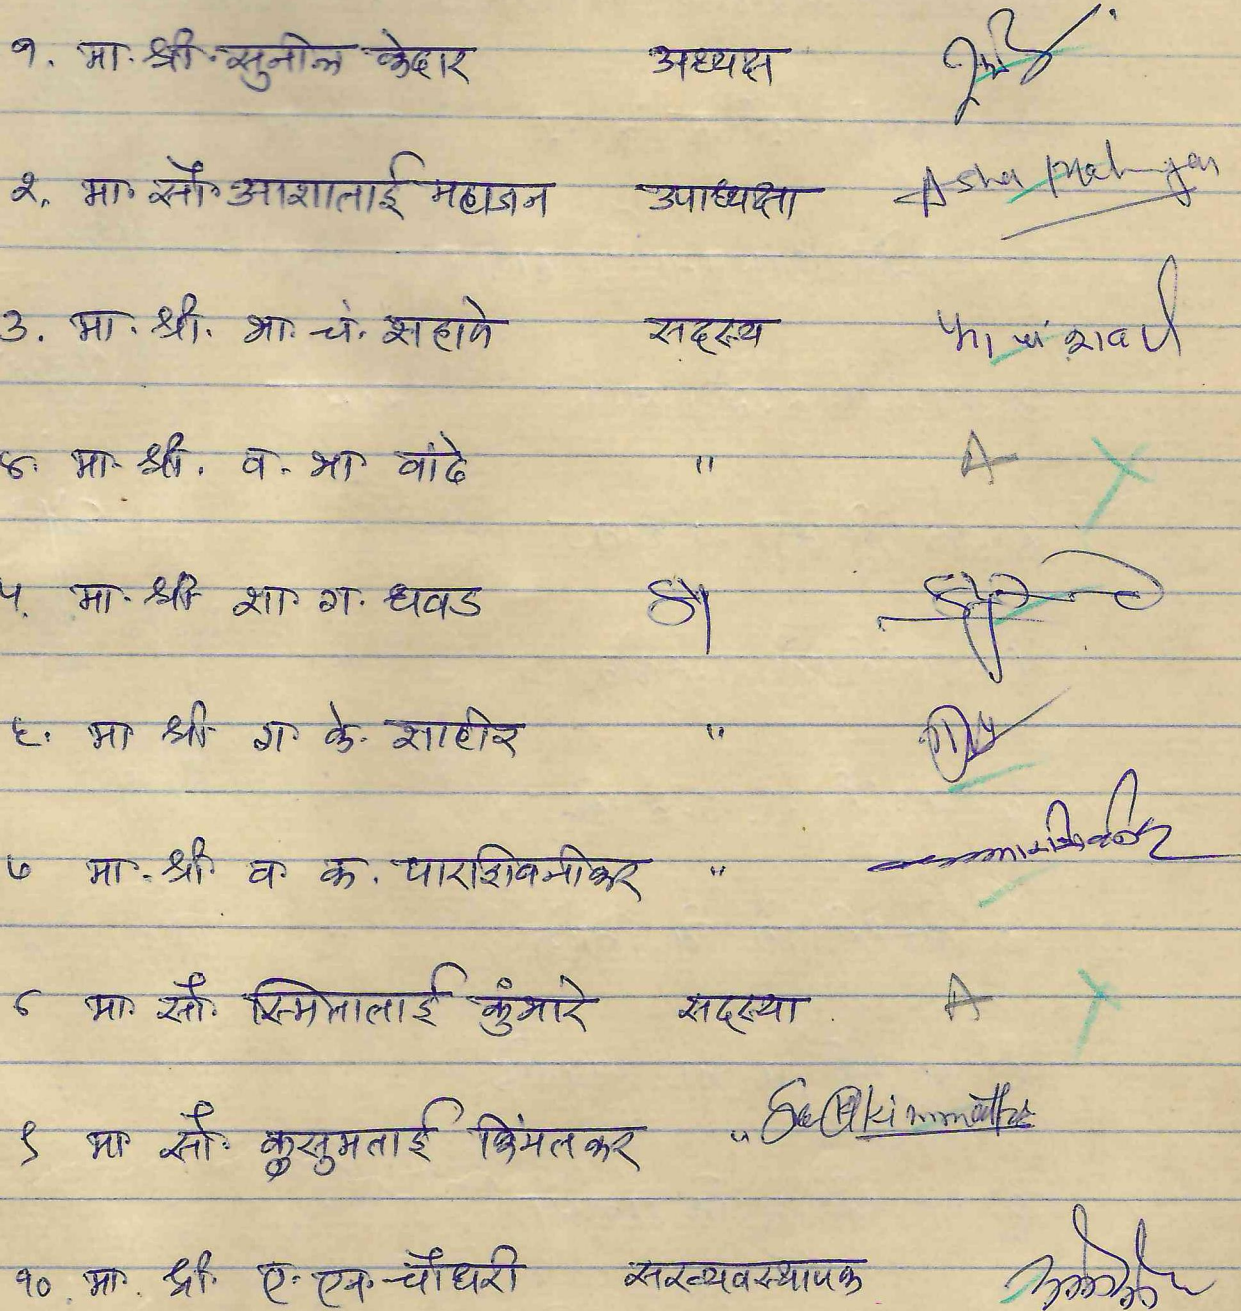 १. मा. श्री. सुनील केदार अध्यक्ष
२. मा. सौ. आशाताई महाजन उपाध्यक्षा Asha Mahajan
३. मा. श्री. भा. चं. शहाणे सदस्य
४. मा. श्री. व. भा वांढे " A
५. मा. श्री शा. ग. धवड
६. मा श्री ग के. शाहीर "
७ मा. श्री व क. पाराशिवनीकर "
८ मा. सौ. स्मिताताई कुंभारे सदस्या A
९ मा सौ. कुसुमताई किंमतकर "
१० मा. श्री. ए. एन. चौधरी सरव्यवस्थापक